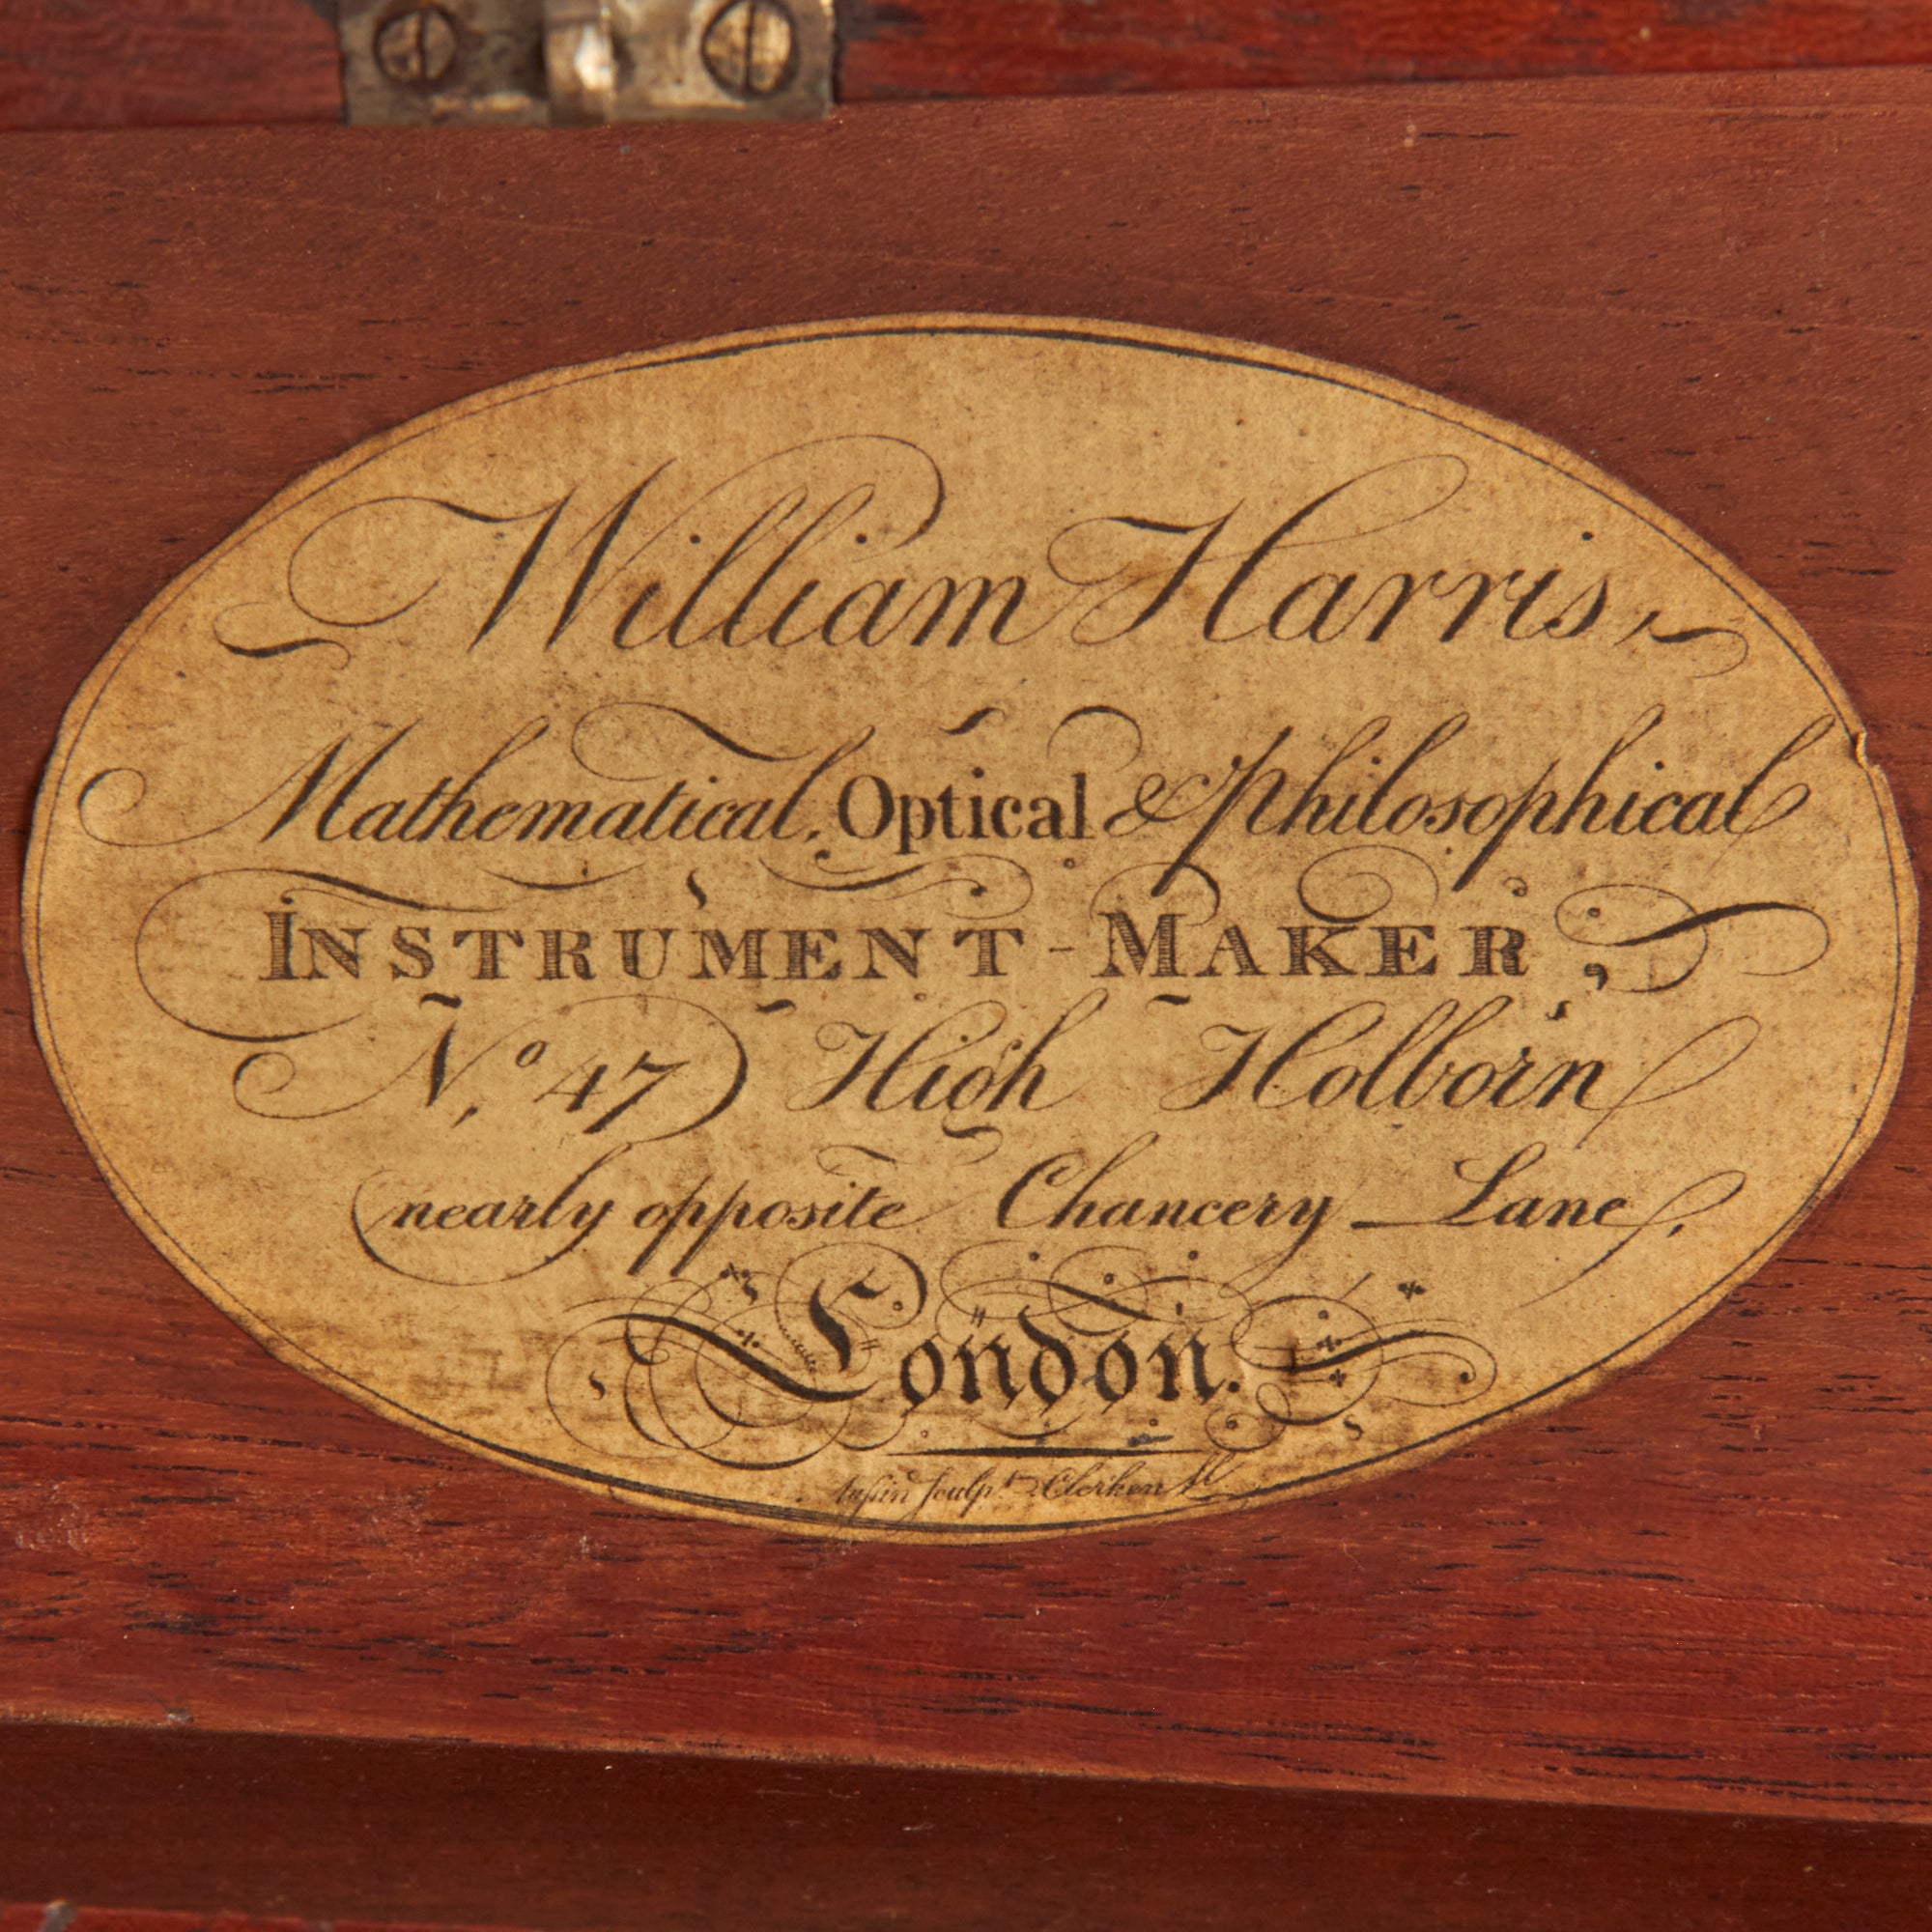 William Harris,
Mathematical, Optical & Philosophical
INSTRUMENT-MAKER,
No. 47 High Holborn
nearly opposite Chancery Lane,
London.
sculpt.